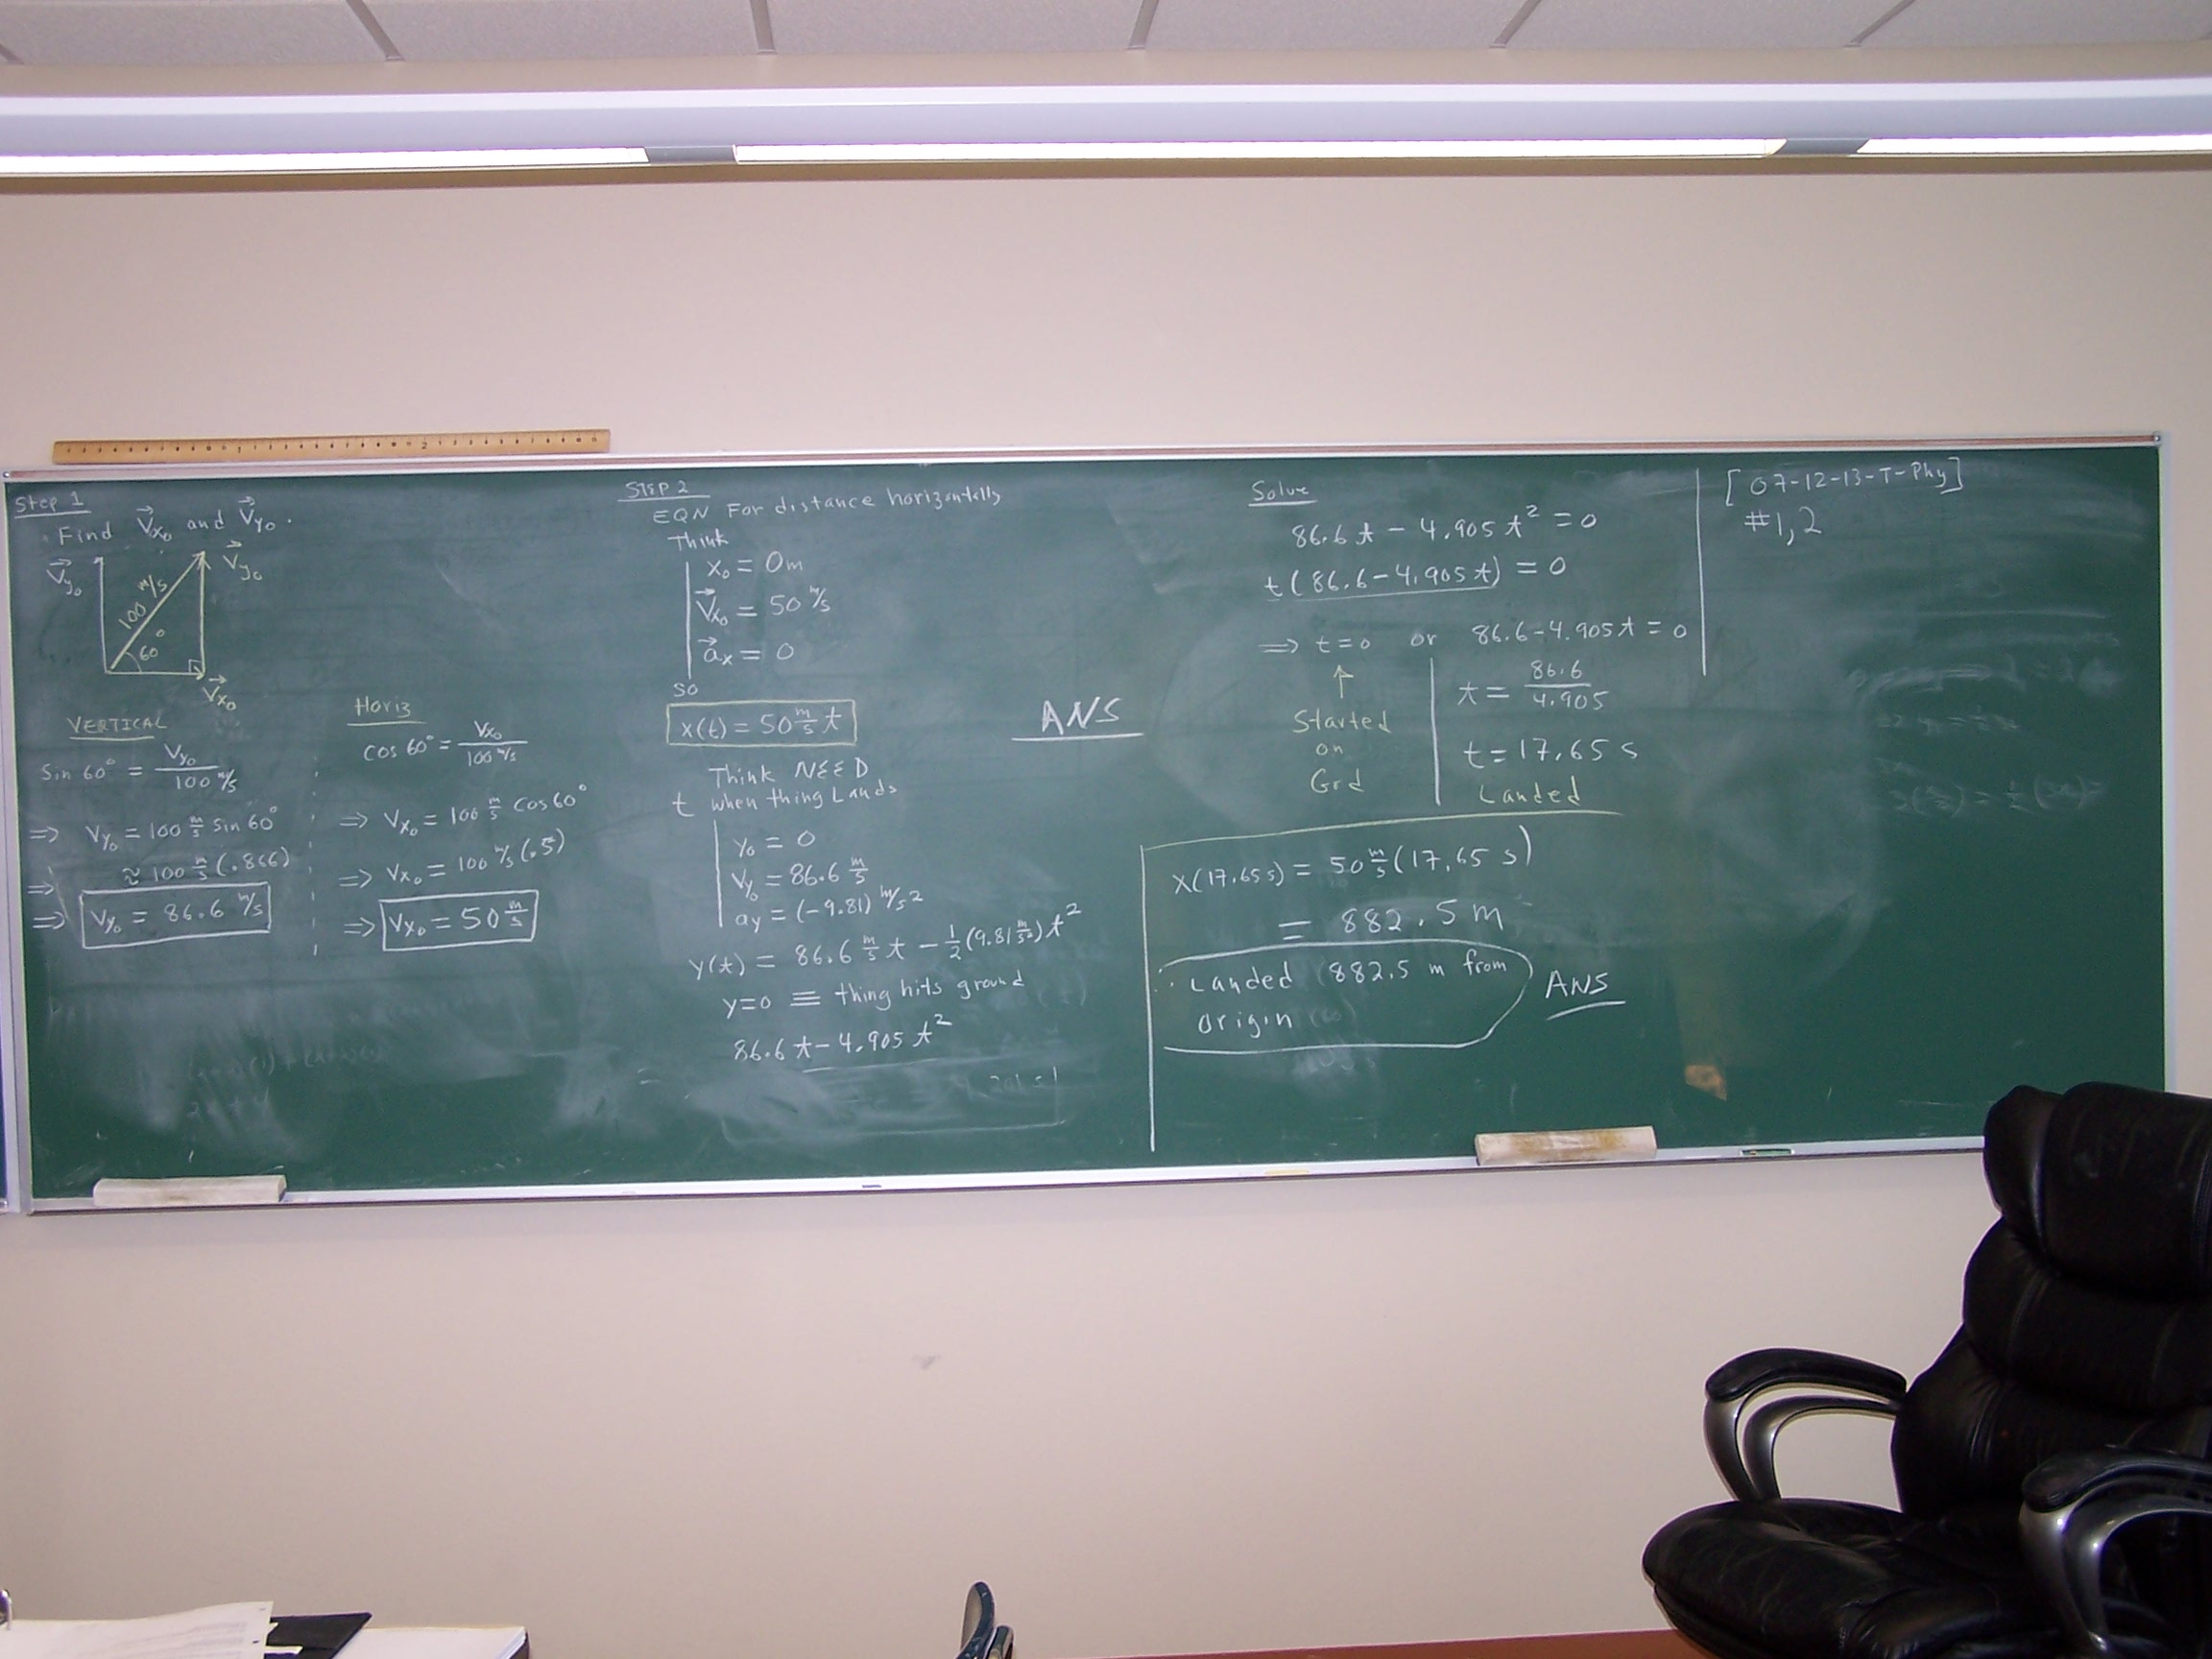 Step 1
Find Vx₀ and Vy₀.
Vy₀
Vy₀
100 m/s
60°
Vx₀
VERTICAL
Sin 60° = Vy₀ / 100 m/s
⇒ Vy₀ = 100 m/s sin 60°
⇒ ≈ 100 m/s (.866)
⇒ Vy₀ = 86.6 m/s
Horiz
cos 60° = Vx₀ / 100 m/s
⇒ Vx₀ = 100 m/s cos 60°
⇒ Vx₀ = 100 m/s (.5)
⇒ Vx₀ = 50 m/s
STEP 2
EQN For distance horizontally
Think
x₀ = 0m
Vx₀ = 50 m/s
ax = 0
so
x(t) = 50 m/s t
ANS
Think NEED
t when thing Lands
y₀ = 0
Vy₀ = 86.6 m/s
ay = (-9.81) m/s²
y(t) = 86.6 m/s t - 1/2 (9.81 m/s²) t²
y=0 ≡ thing hits ground
86.6 t - 4.905 t²
Solve
86.6 t - 4.905 t² = 0
t (86.6 - 4.905 t) = 0
⇒ t = 0 or 86.6 - 4.905 t = 0
↑
Started
on
Grd
t = 86.6 / 4.905
t = 17.65 s
Landed
x(17.65 s) = 50 m/s (17.65 s)
= 882.5 m
∴ Landed 882.5 m from
origin
ANS
[07-12-13-T-Phy]
#1,2